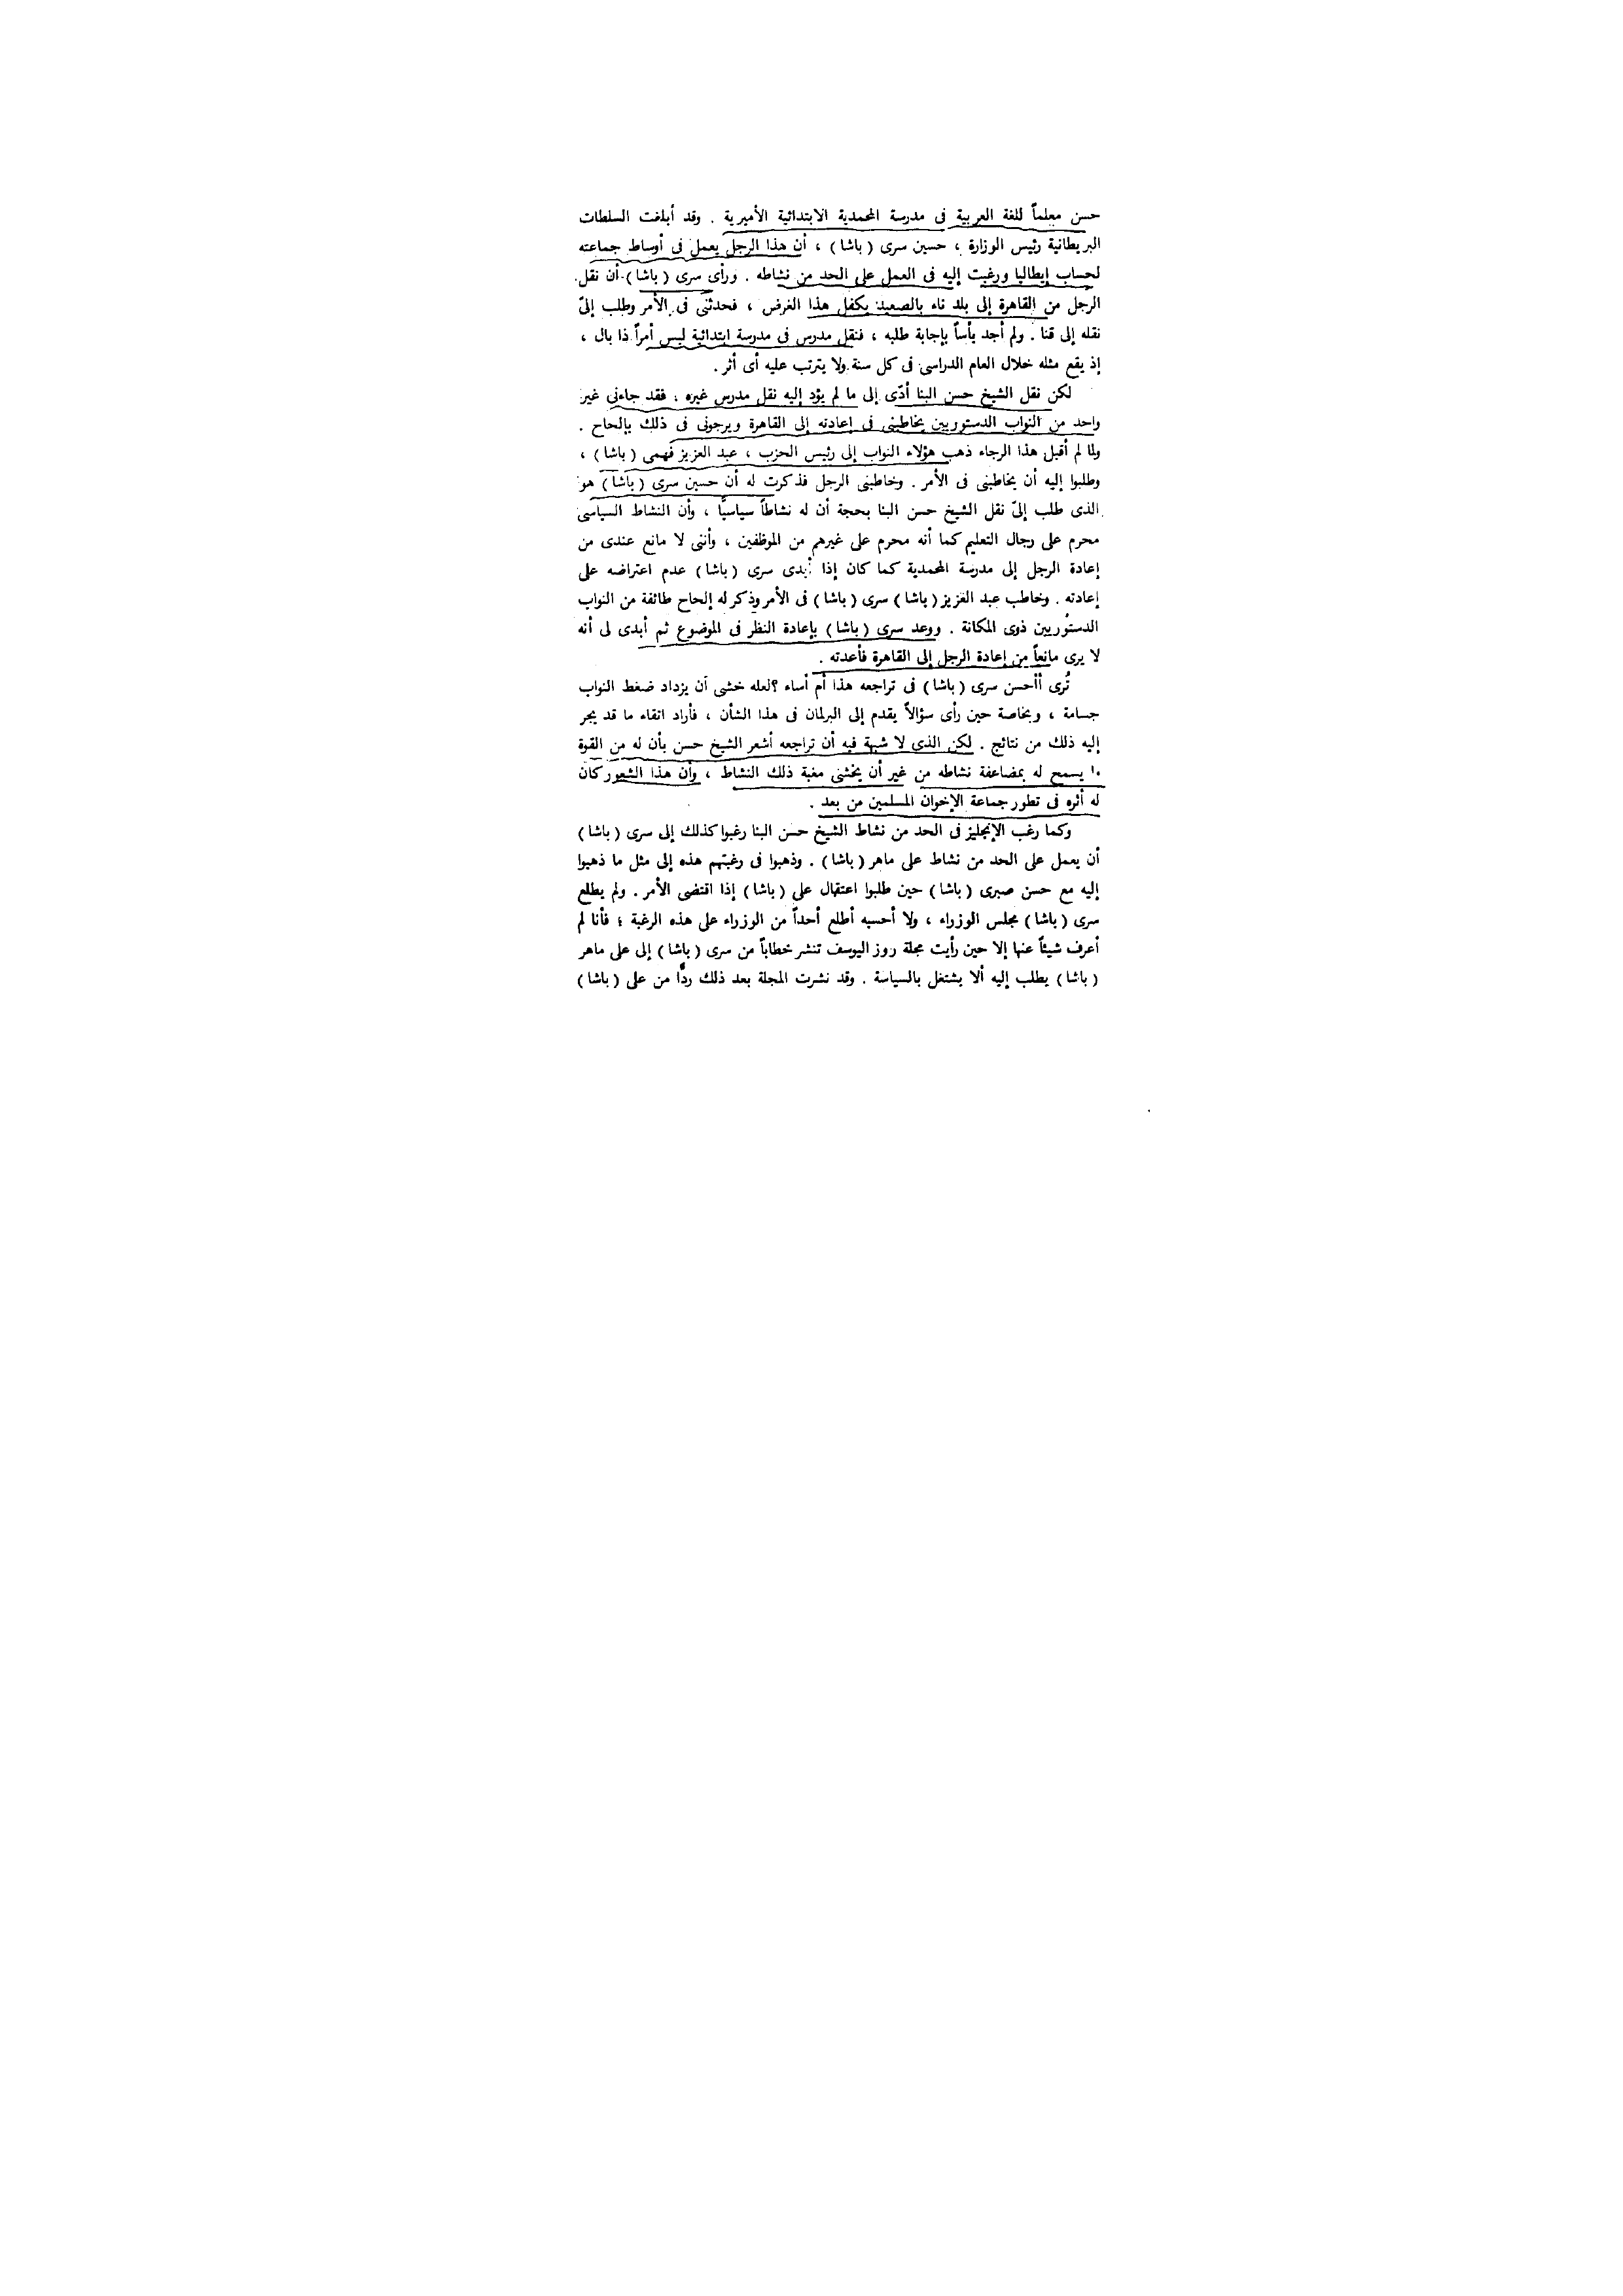 حسن معلماً للغة العربية فى مدرسة المحمدية الابتدائية الأميرية . وقد أبلغت السلطات
البريطانية رئيس الوزارة ، حسين سرى ( باشا ) ، أن هذا الرجل يعمل فى أوساط جماعته
لحساب إيطاليا ورغبت إليه فى العمل على الحد من نشاطه . ورأى سرى ( باشا ) أن نقل
الرجل من القاهرة إلى بلد ناء بالصعيد يكفل هذا الغرض ، فحدثنى فى الأمر وطلب إلىّ
نقله إلى قنا . ولم أجد بأساً بإجابة طلبه ، فنقل مدرس فى مدرسة ابتدائية ليس أمراً ذا بال ،
إذ يقع مثله خلال العام الدراسى فى كل سنة ولا يترتب عليه أى أثر .
لكن نقل الشيخ حسن البنا أدّى إلى ما لم يؤد إليه نقل مدرس غيره ، فقد جاءنى غير
واحد من النواب الدستوريين يخاطبنى فى إعادته إلى القاهرة ويرجونى فى ذلك بإلحاح .
ولما لم أقبل هذا الرجاء ذهب هؤلاء النواب إلى رئيس الحزب ، عبد العزيز فهمى ( باشا ) ،
وطلبوا إليه أن يخاطبنى فى الأمر . وخاطبنى الرجل فذكرت له أن حسين سرى ( باشا ) هو
الذى طلب إلىّ نقل الشيخ حسن البنا بحجة أن له نشاطاً سياسيًّا ، وأن النشاط السياسى
محرم على رجال التعليم كما أنه محرم على غيرهم من الموظفين ، وأننى لا مانع عندى من
إعادة الرجل إلى مدرسة المحمدية كما كان إذا أبدى سرى ( باشا ) عدم اعتراضه على
إعادته . وخاطب عبد العزيز ( باشا ) سرى ( باشا ) فى الأمر وذكر له إلحاح طائفة من النواب
الدستوريين ذوى المكانة . ووعد سرى ( باشا ) بإعادة النظر فى الموضوع ثم أبدى لى أنه
لا يرى مانعاً من إعادة الرجل إلى القاهرة فأعدته .
تُرى أأحسن سرى ( باشا ) فى تراجعه هذا أم أساء ؟ لعله خشى أن يزداد ضغط النواب
جسامة ، وبخاصة حين رأى سؤالاً يقدم إلى البرلمان فى هذا الشأن ، فأراد اتقاء ما قد يجر
إليه ذلك من نتائج . لكن الذى لا شبهة فيه أن تراجعه أشعر الشيخ حسن بأن له من القوة
ما يسمح له بمضاعفة نشاطه من غير أن يخشى مغبة ذلك النشاط ، وأن هذا الشعور كان
له أثره فى تطور جماعة الإخوان المسلمين من بعد .
وكما رغب الإنجليز فى الحد من نشاط الشيخ حسن البنا رغبوا كذلك إلى سرى ( باشا )
أن يعمل على الحد من نشاط على ماهر ( باشا ) . وذهبوا فى رغبتهم هذه إلى مثل ما ذهبوا
إليه مع حسن صبرى ( باشا ) حين طلبوا اعتقال على ( باشا ) إذا اقتضى الأمر . ولم يطلع
سرى ( باشا ) مجلس الوزراء ، ولا أحسبه أطلع أحداً من الوزراء على هذه الرغبة ؛ فأنا لم
أعرف شيئاً عنها إلا حين رأيت مجلة روز اليوسف تنشر خطاباً من سرى ( باشا ) إلى على ماهر
( باشا ) يطلب إليه ألا يشتغل بالسياسة . وقد نشرت المجلة بعد ذلك ردًّا من على ( باشا )